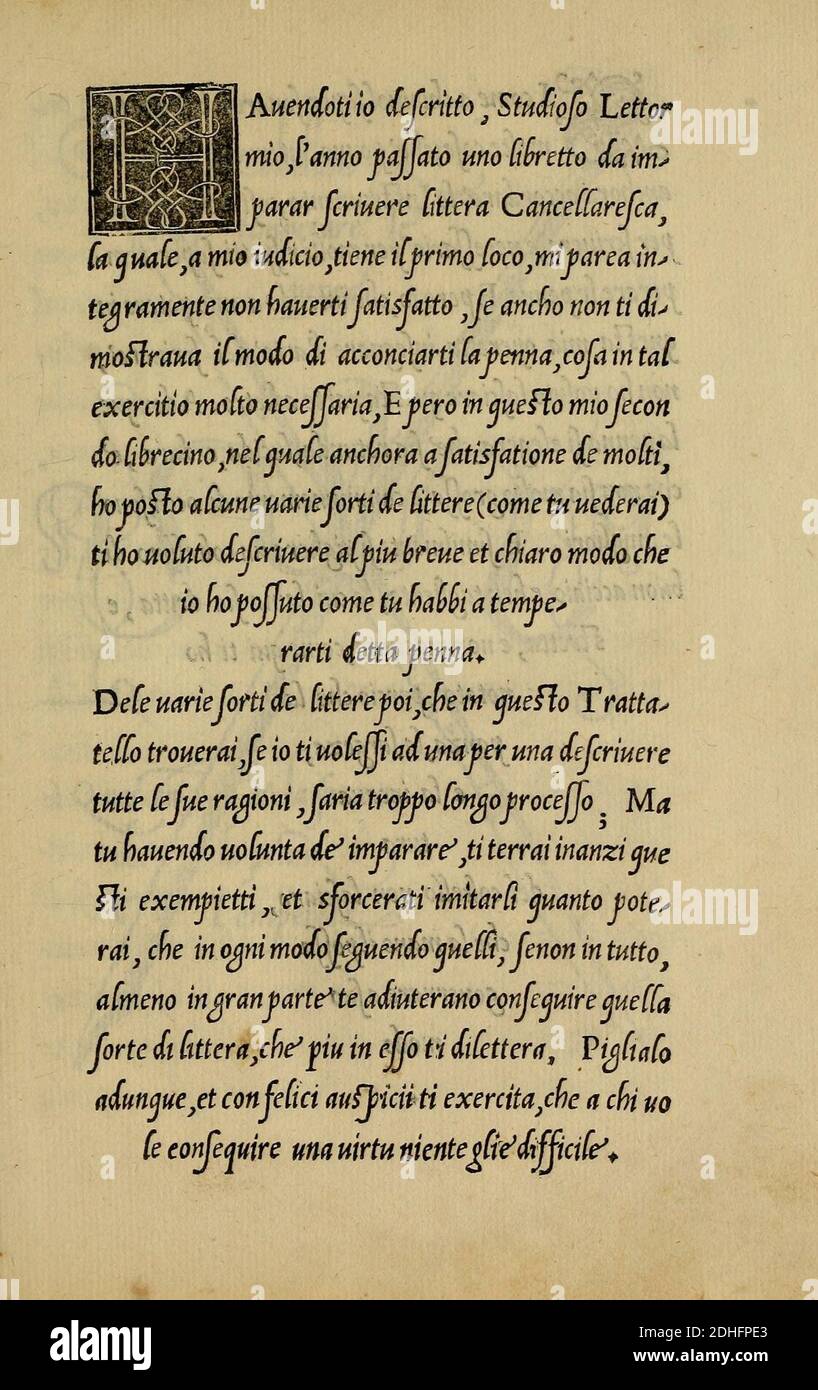 HAuendoti io deſcritto, Studioſo Lettor
mio, l'anno paſſato uno libretto da im-
parar ſcriuere littera Cancellareſca,
la quale, a mio iudicio, tiene il primo loco, mi parea in-
tegramente non hauerti ſatisfatto, ſe ancho non ti di-
moſtraua il modo di acconciarti la penna, coſa in tal
exercitio molto neceſſaria, E pero in queſto mio ſecon
do librecino, nel quale anchora a ſatisfatione de molti,
ho poſto alcune uarie ſorti de littere (come tu uederai)
ti ho uoluto deſcriuere al piu breue et chiaro modo che
io ho poſſuto come tu habbi a tempe-
rarti detta penna.
Dele uarie ſorti de littere poi, che in queſto Tratta-
tello trouerai, ſe io ti uoleſſi ad una per una deſcriuere
tutte le ſue ragioni, ſaria troppo longo proceſſo; Ma
tu hauendo uolunta de imparare, ti terrai inanzi que
ſti exempietti, et sforcerati imitarli quanto pote-
rai, che in ogni modo ſeguendo quelli, ſenon in tutto,
almeno in gran parte te adiuterano conſequire quella
ſorte di littera, che piu in eſſo ti dilettera. Piglialo
adunque, et con felici auſpicii ti exercita, che a chi uo
le conſequire una uirtu niente glie difficile.
alamy
Image ID: 2DHFPE3
www.alamy.com